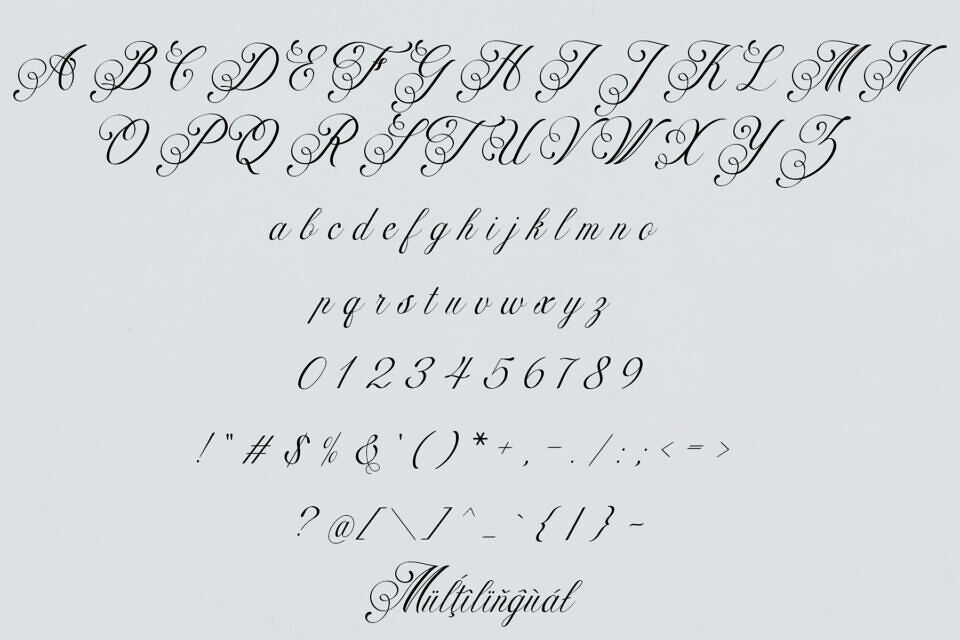 A B C D E F G H I J K L M N
O P Q R S T U V W X Y Z
a b c d e f g h i j k l m n o
p q r s t u v w x y z
0 1 2 3 4 5 6 7 8 9
! " # $ % & ' ( ) * + , - . / : ; < = >
? @ [ \ ] ^ _ ` { | } ~
Müļţîlïñĝùáł